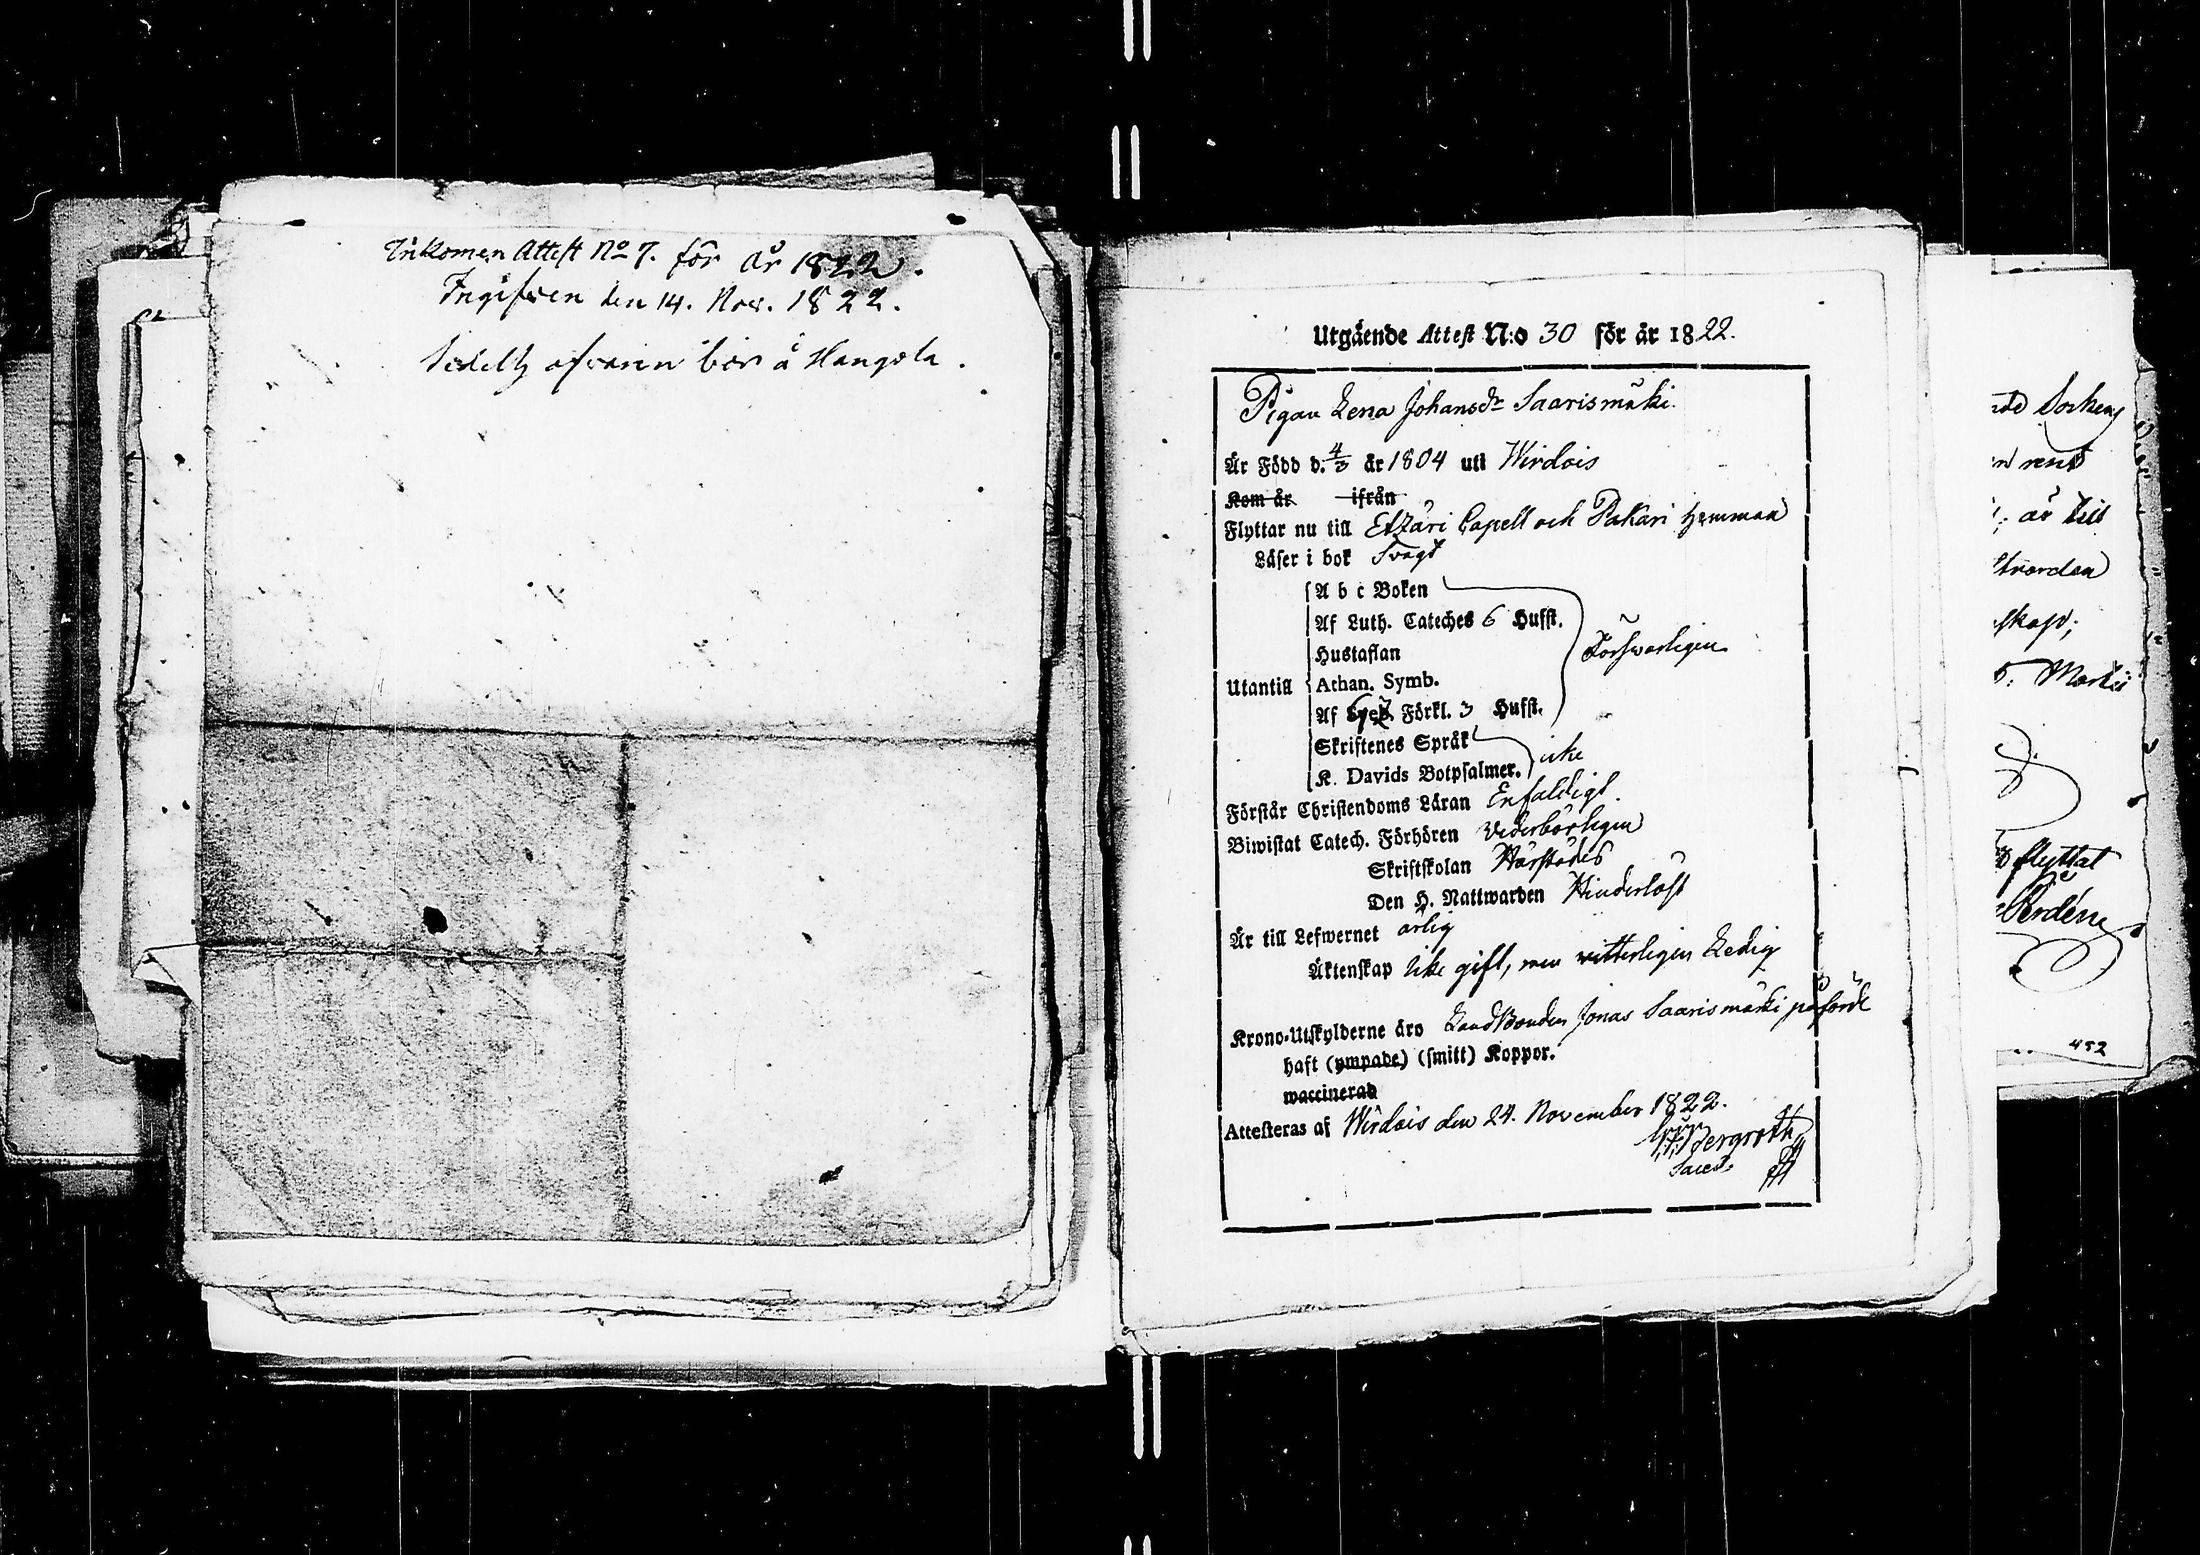 Inkomen Attest No 7. för år 1822.
Ingifven den 14. Nov. 1822.
afvanen bör å Hangola.
Utgående Attest N:o 30 för år 1822.
Pigan Lena Johansdr Saarismäki.
Är Född d. 4/3 år 1804 uti Wirdois
Kom år ifrån
Flyttar nu till Etzäri Capell och Pakari Hemman
Läser i bok Svagt
Utantill
A b c Boken
Af Luth. Cateches 6 Hufst.
Hustaflan
Athan. Symb.
Af Förkl. 3 Hufst.
Försvarligen
Skriftenes Språk
K. Davids Botpsalmer.
icke
Förstår Christendoms Läran Enfaldigt.
Biwistat Catech. Förhören Vederbörligen
Skriftskolan Härstädes
Den H. Nattwarden Hinderlöst
Är till Lefwernet ärlig
Äktenskap icke gift, men vitterligen Ledig
Krono-Utskylderne äro Landbonden Jonas Saarismäki påförde
haft (ympade) (smitt) Koppor.
waccinerad
Attesteras af Wirdois den 24. November 1822.
Bergroth
Sacell.
Socken
rent
är
skap;
flyttat
452